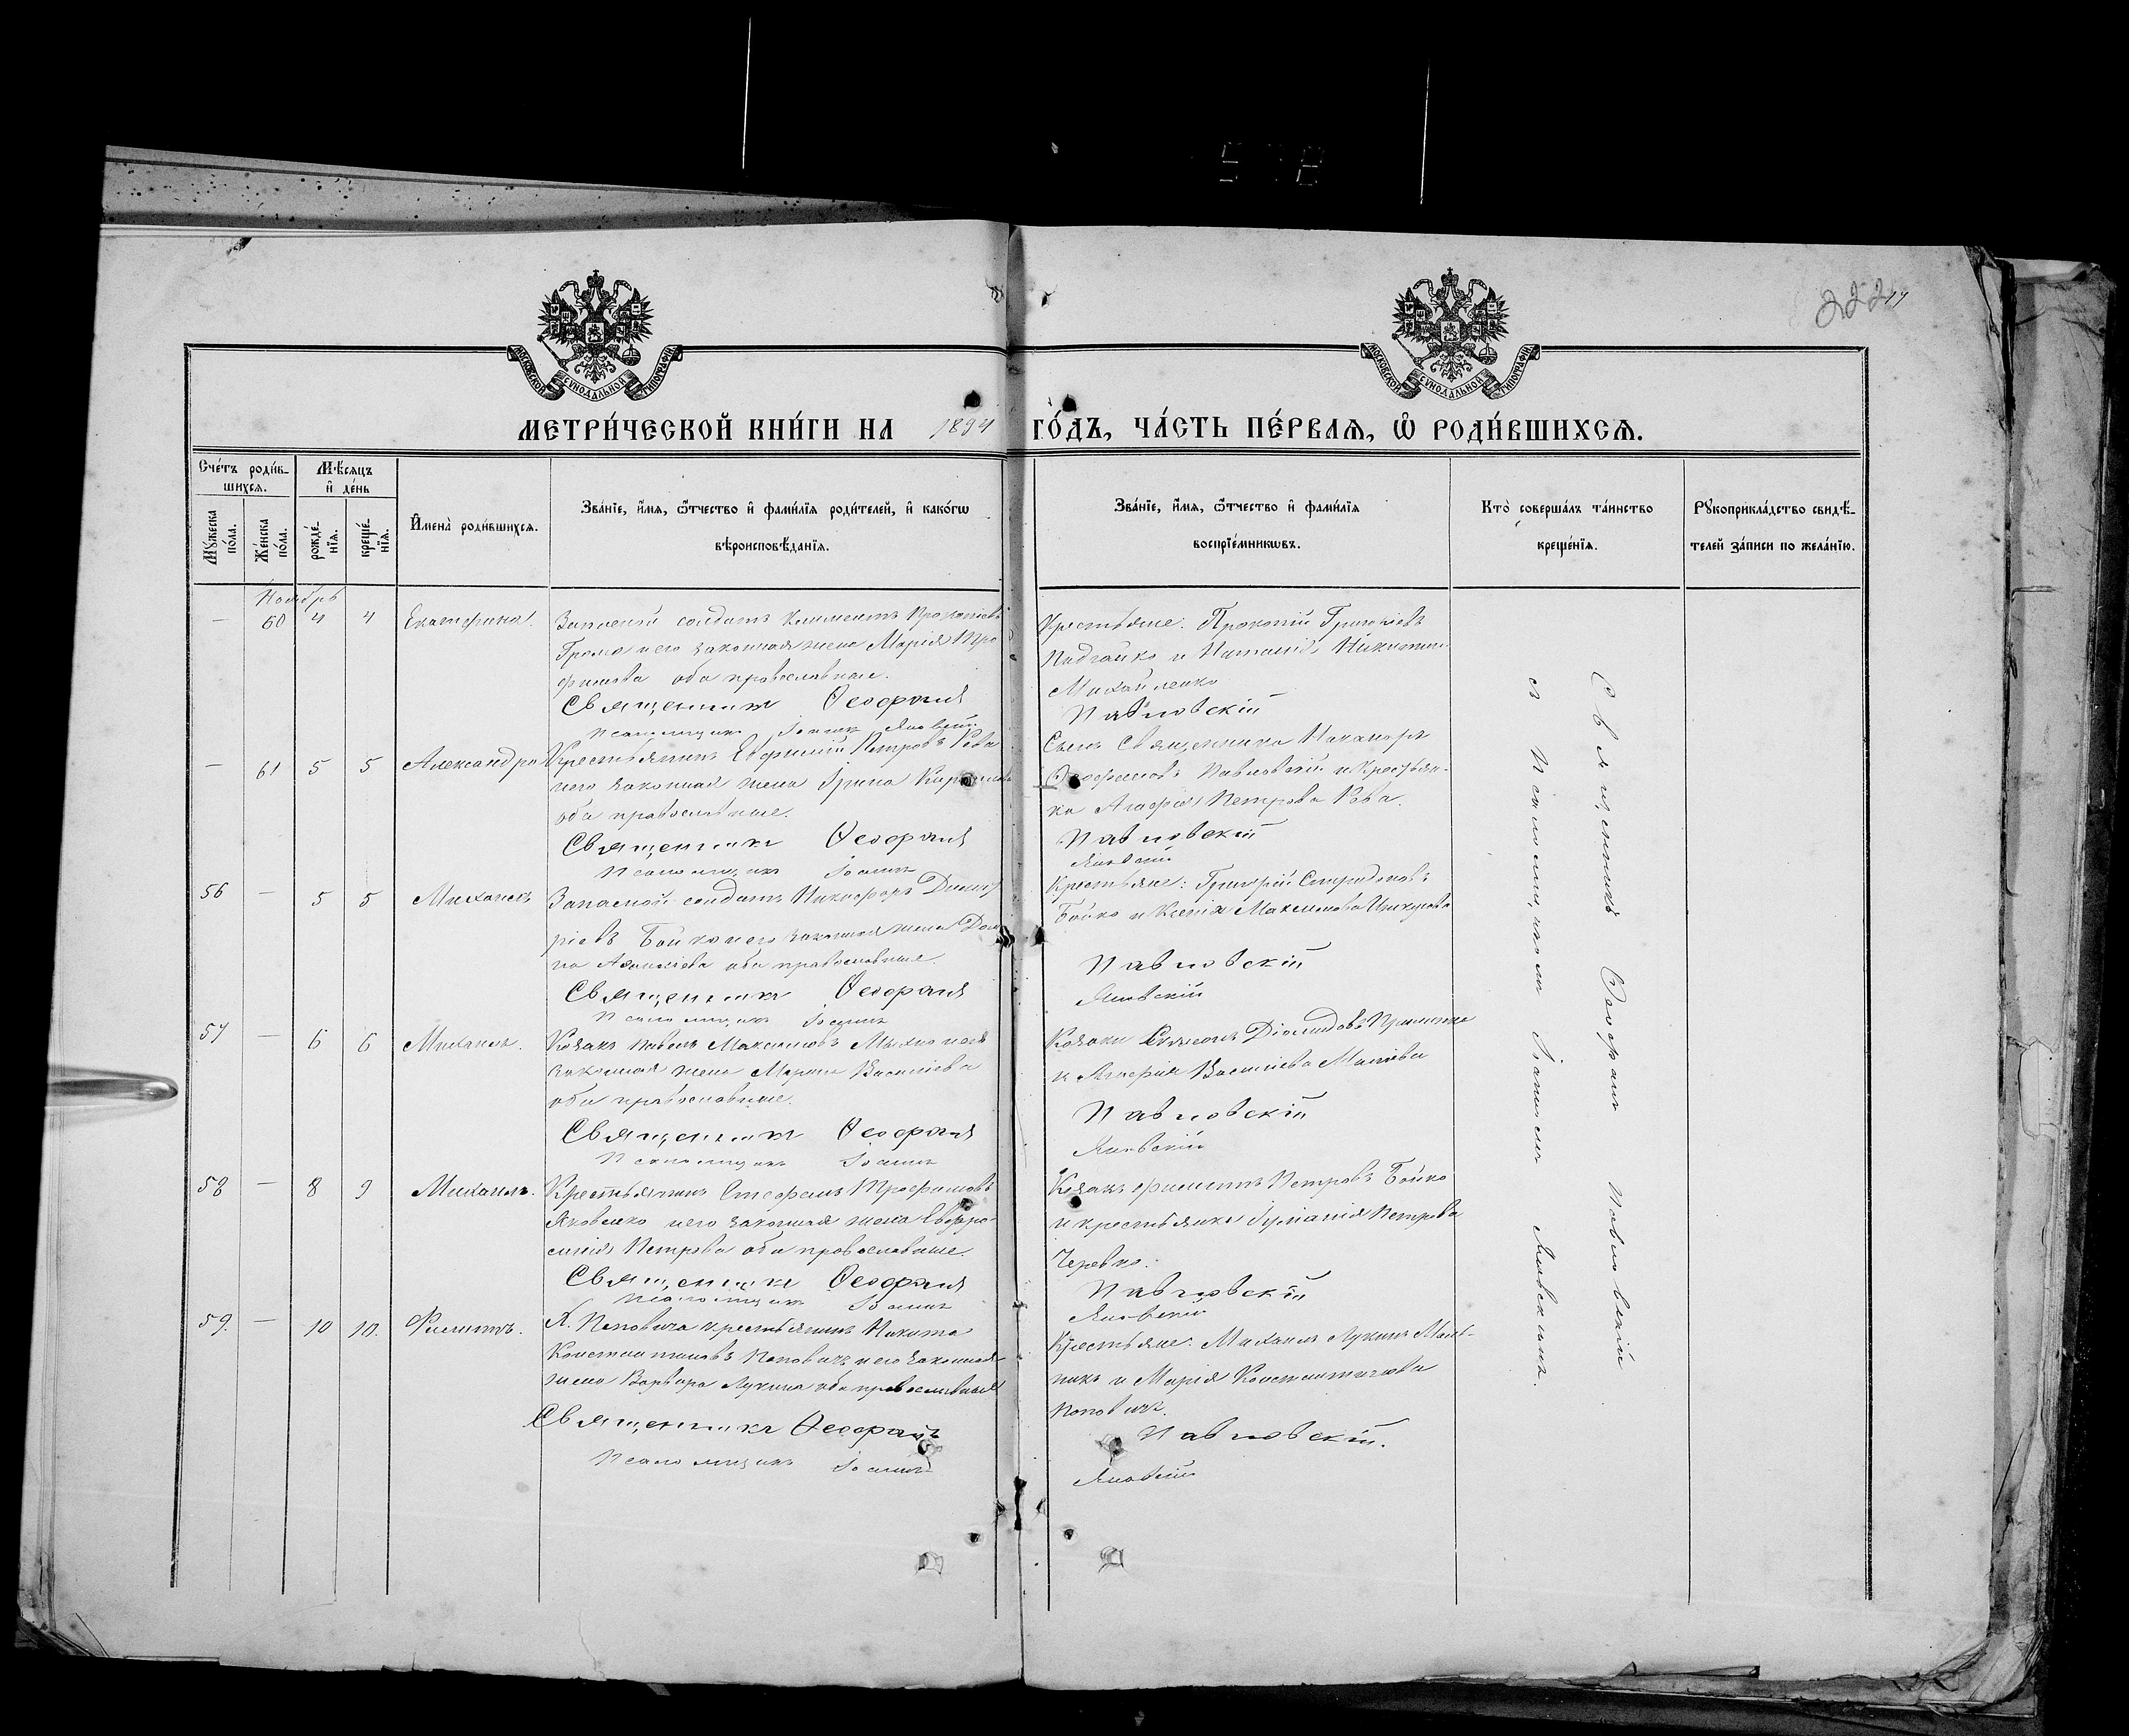 222
МОСКОВСКОЙ СѴНОДАЛЬНОЙ ТИПОГРАФІИ
МОСКОВСКОЙ СѴНОДАЛЬНОЙ ТИПОГРАФІИ
МЕТРИ́ЧЕСКОЙ КНИ́ГИ НА 1894 ГО́ДЪ, ЧА́СТЬ ПЕ́РВАѦ, Ѡ҆ РОДИ́ВШИХСѦ.
Сче́тъ роди́в-
шихсѧ.
Мѣ́сѧцъ
и҆ де́нь
Мꙋ́жеска
по́ла.
Же́нска
по́ла.
рожде́-
нїѧ.
креще́-
нїѧ.
И҆мена̀ роди́вшихсѧ.
Зва́нїе, и҆́мѧ, ѻ҆́тчество и҆ фами́лїѧ роди́телей, и҆ како́гѡ
вѣроисповѣ́данїѧ.
Зва́нїе, и҆́мѧ, ѻ҆́тчество и҆ фами́лїѧ
воспрїе́мникѡвъ.
Кто̀ соверша́лъ та́инство
креще́нїѧ.
Рꙋкоприкла́дство свидѣ́-
телей за́писи по жела́нїю.
Ноябрь
— 60 4 4 Екатерина.
Запасной солдатъ Климентъ Прокопіевъ
его законная жена Марія Тро
фимова оба православные.
Священникъ Ѳеофанъ
Псаломщикъ Іоаннъ Яновскій
Крестьяне: Прокопій Григоріевъ
и Наталія Никитина
Михайленко
Павловскій
— 61 5 5 Александра
Крестьянинъ Евфимій Петровъ Рева
и его законная жена Ірина Кирилова
оба православные.
Священникъ Ѳеофанъ
Псаломщикъ Іоаннъ
Сынъ Священника Никаноръ
Ѳеофановъ Павловскій и Крестьян-
ка Агафія Петрова Рева.
Павловскій
Яновскій
56 — 5 5 Михаилъ
Запасной солдатъ Никифоръ Димит
ріевъ Бойко и его законная жена
на оба православные.
Священникъ Ѳеофанъ
Псаломщикъ Іоаннъ
Крестьяне: Григорій Спиридоновъ
Бойко и Ксенія Максимова
Павловскій
Яновскій
57 — 6 6 Михаилъ.
Козакъ Павелъ Максимовъ и его
законная жена Марина Василіева
оба православные.
Священникъ Ѳеофанъ
Псаломщикъ Іоаннъ
Козаки Діомидовъ
и Агафія Василіева
Павловскій
Яновскій
58 — 8 9 Михаилъ.
Крестьянинъ Стефанъ Трофимовъ
Яковенко и его законная жена Евфро-
синія Петрова оба православные.
Священникъ Ѳеофанъ
Псаломщикъ Іоаннъ
Козакъ Филиппъ Петровъ Бойко
и крестьянка Іуліанія Петрова
Черевко.
Павловскій
Яновскій
59. — 10 10. Филиппъ.
Х. Поповича крестьянинъ Никита
Константиновъ Поповичъ и его законная
жена Варвара Лукина оба православные
Священникъ Ѳеофанъ
Псаломщикъ Іоаннъ
Крестьяне: Михаилъ Лукинъ Мель-
никъ и Марія Константинова
Поповичъ.
Павловскій.
Яновскій
Священникъ Ѳеофанъ Павловскій
съ Псаломщикомъ Іоанномъ Яновскимъ.